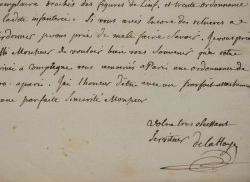 emplaire brochés des figures de l'inf. et trente ordonnance
ladite infanterie. Si vous avés encore des relieures à
ordonner je vous prie de me le faire sçavoir. Je vous prie
Monsieur de vouloir bien vous souvenir que votre
à Compiegne vous m'enverrés à Paris une ordonnance de
J'ai l'honneur d'être avec un parfait attachement
une parfaite sincérité Monsieur
Votre très obéissant
Serviteur
De la Haye